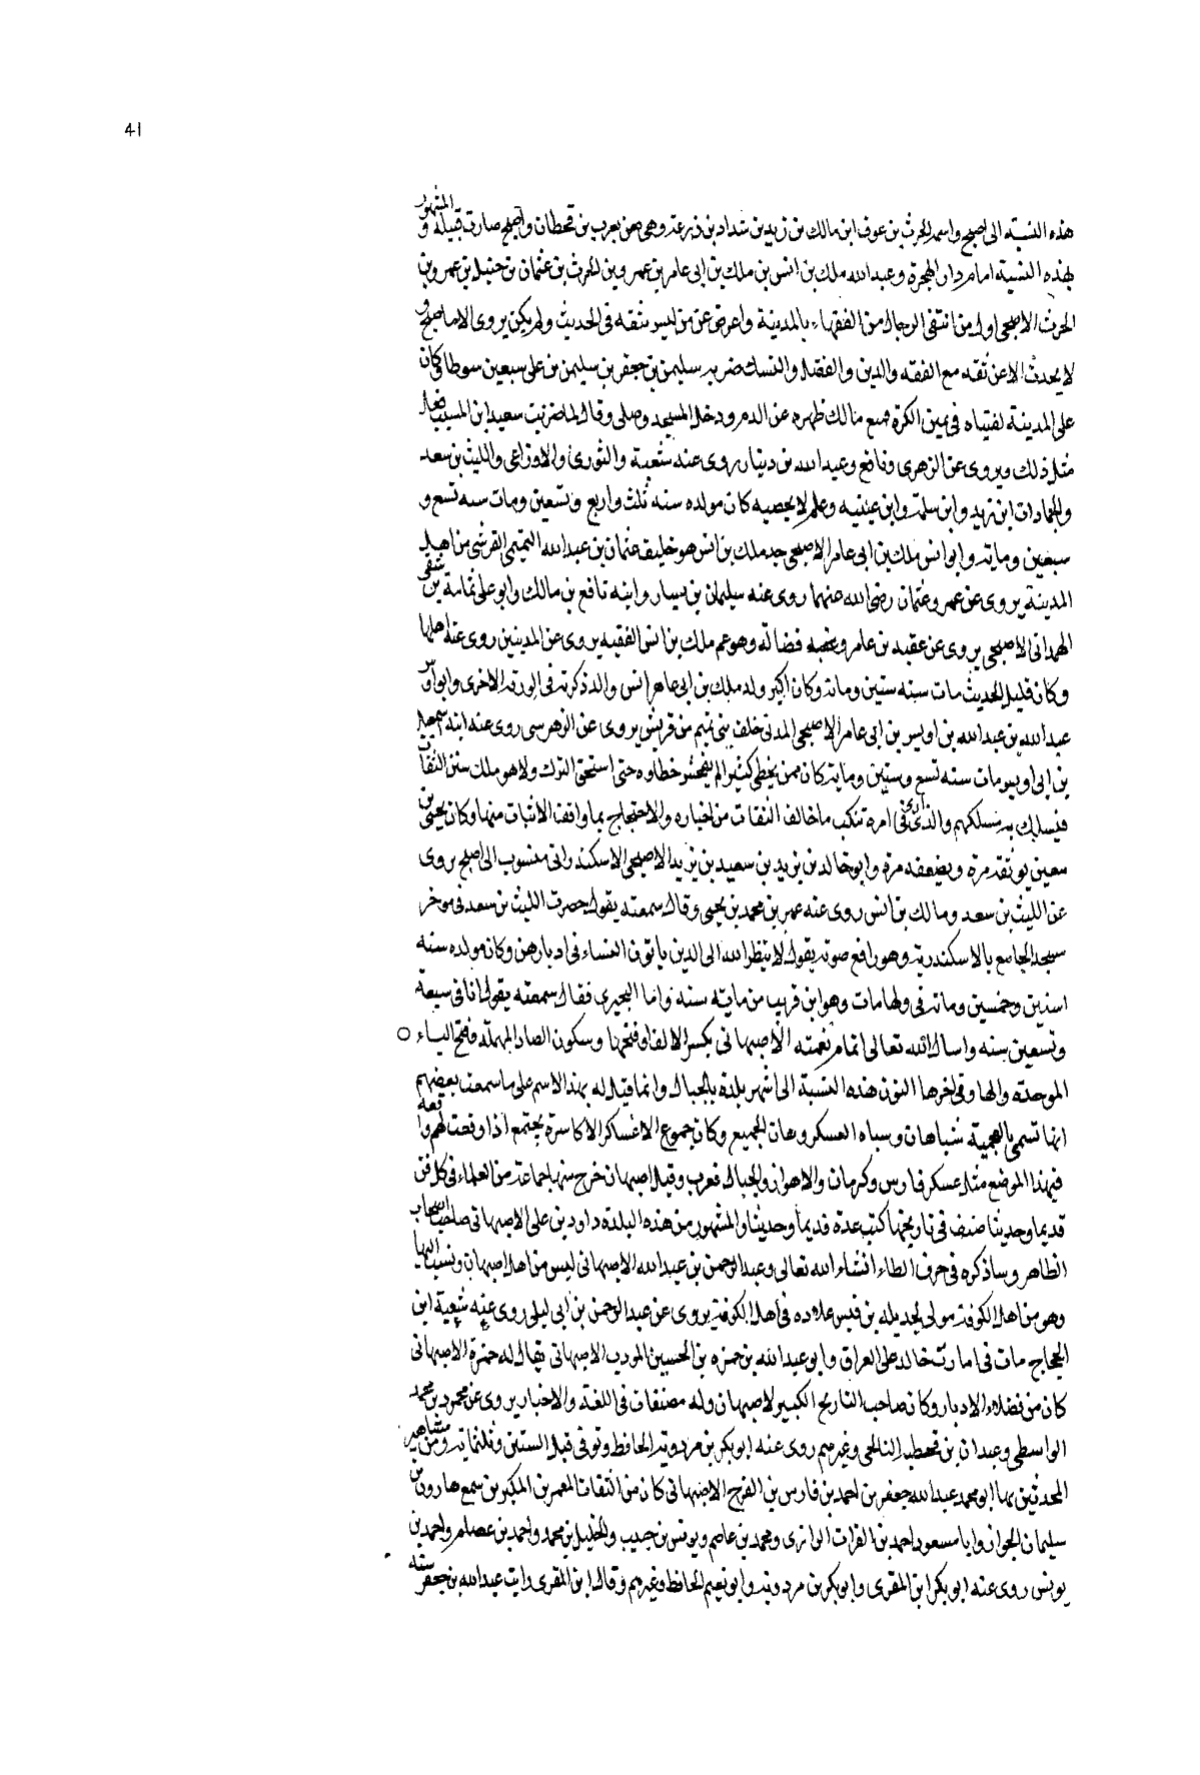 41
هذه النسبة الى اصبح واسمه الحرث بن عوف ابن مالك بن زيد بن شداد بن زرعة وهى من يعرب بن قحطان واصبح صارت قبيلة و المشهور
بهذه النسبة امام دار الهجرة وعبد الله ملك بن انس بن ملك بن ابى عامر بن عمرو بن الحرث بن عثمان بن حنبل بن عمرو بن
الحرث الاصبحى اول من انتقى الرجال من الفقهاء بالمدينة واعرض عن من ليس بثقه فى الحديث ولم يكن يروى الا ما صح و
لا يحدث الا عن ثقه مع الفقه والدين والفضل والنسك ضربه سليمن بن جعفر بن سليمن بن على سبعين سوطا كان
على المدينة لفتياه فى يمين الكرة مسح مالك ظهره عن الدم ودخل المسجد وصلى وقال لما ضربت سعيد ابن المسيب فعل
مثل ذلك ويروى عن الزهرى ونافع وعبد الله بن دينار روى عنه شعبة والثورى والاوزاعى والليث بن سعد
والحمادان ابن زيد وابن سلمة وابن عيينيه وعلم لا يحصيه كان مولده سنه ثلث واربع وتسعين ومات سنه تسع و
سبعين وماية وابو انس ملك بن ابى عامر الاصبحى جد ملك بن انس هو خليف عثمان بن عبد الله التيمى القرشى من اهل
المدينة يروى عن عمر وعثمان رضى الله عنهما روى عنه سليمان بن يسار وابنه نافع بن مالك وابو على ثمامة بن شفى
الهمدانى الاصبحى يروى عن عقبه بن عامر وفضاله وهو عم ملك بن انس الفقيه يروى عن المدينين روى عنه اهلها
وكان قليل الحديث مات سنه ستين وماية وكان اكبر ولد ملك بن ابى عامر انس والد ذكرته فى الورقة الاخرى وابو اوس
عبد الله بن عبد الله بن اويس بن ابى عامر الاصبحى المدنى خلف بنى تيم من قريش يروى عن الزهرى روى عنه ابنه اسمعيل
بن ابى اويس ومات سنه تسع وستين وماية كان ممن يخطى كثيرا لم يفحش خطاوه حتى استحق الترك ولا هو ملك سنن الثقات
فيسلك به مسلكهم والذى ارى فى امره تنكب ما خالف الثقات من اخباره والاحتجاج بما وافق الاثبات منها وكان يحيى بن
معين يوثقه مرة ويضعفه مرة وابو خالد بن يزيد بن سعيد بن يزيد الاصبحى الاسكندرانى منسوب الى اصبح يروى
عن الليث بن سعد ومالك بن انس روى عنه عمر بن محمد بن يحيى وقال سمعته يقول حضرت الليث بن سعد فى موخر
مسجد الجامع بالاسكندرية وهو رافع صوته يقول لا ينظر الله الى الذين ياتون النساء فى ادبارهن وكان مولده سنه
اسنين وخمسين وماية فى ولها مات وهو ابن قريب من ماية سنه واما البحيرى فقال سمعته يقول انا فى سبعة
وتسعين سنه واسال الله تعالى اتمام نعمته الاصبهانى بكسر الالف او فتحها وسكون الصاد المهملة وفتح الباء ○
الموحدة والها وفى اخرها النون هذه النسبة الى اشهر بلدة بالجبال وانما قيل له بهذا الاسم على ما سمعت بعضهم
انها تسمى بالعجمية سباهان وسباه العسكر وهان الجميع وكان جموع الاعساكر الاكاسرة يجتمع اذا وقعت لهم واقعة
فى هذا الموضع مثل عسكر فارس وكرمان والاهواز والجبال فعرب وقيل اصبهان خرج منها جماعة من العلماء فى كل فن
قديما وحديثا صنف فى تاريخها كتب عدة قديما وحديثا والمشهور من هذه البلدة داود بن على الاصبهانى صاحب اصحاب
الظاهر وساذكره فى حرف الظاء انشاء الله تعالى وعبد الرحمن بن عبد الله الاصبهانى ليس من اهل اصبهان ونسب اليها
وهو من اهل الكوفة مولى لجديله بن قيس علاوده فى اهل الكوفة يروى عن عبد الرحمن بن ابى ليلى روى عنه شعبة ابن
الحجاج مات فى امارت خالد على العراق وابو عبد الله بن حمزه بن الحسين المودب الاصبهانى يقال له حمزة الاصبهانى
كان من فضلاء الادبار وكان صاحب التاريخ الكبير لاصبهان وله مصنفات فى اللغة والاخبار يروى عن محمود بن محمد
الواسطى وعبدان بن قحطبه النالحى وغيرهم روى عنه ابو بكر بن مردوية الحافظ وتوفى قبل الستين وثلثماية ومن مشاهير
المحدثين بها ابو محمد عبد الله جعفر بن احمد بن فارس بن الفرج الاصبهانى كان من الثقات المعمرين المكثرين سمع هارون بن
سليمان الجواز وابا مسعود احمد بن الفرات الرازى ومحمد بن عاصم ويونس بن حبيب والخليل بن محمد واحمد بن عصام واحمد بن
يونس روى عنه ابو بكر ابن المقرى وابو بكر بن مردوية وابو نعيم الحافظ وغيرهم وقال ابن المقرى رايت عبد الله بن جعفر سنه